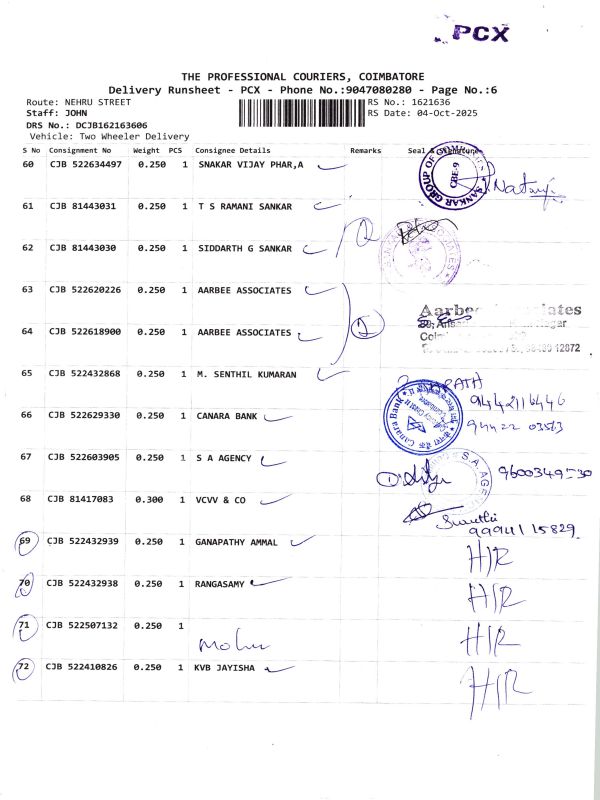 PCX
THE PROFESSIONAL COURIERS, COIMBATORE
Delivery Runsheet - PCX - Phone No.:9047080280 - Page No.:6
Route: NEHRU STREET
RS No.: 1621636
Staff: JOHN
RS Date: 04-Oct-2025
DRS No.: DCJB162163606
Vehicle: Two Wheeler Delivery
S No Consignment No Weight PCS Consignee Details Remarks Seal & Signature
60 CJB 522634497 0.250 1 SNAKAR VIJAY PHAR,A
SANKAR GROUP OF CBE-9
61 CJB 81443031 0.250 1 T S RAMANI SANKAR
62 CJB 81443030 0.250 1 SIDDARTH G SANKAR
63 CJB 522620226 0.250 1 AARBEE ASSOCIATES
2
64 CJB 522618900 0.250 1 AARBEE ASSOCIATES
65 CJB 522432868 0.250 1 M. SENTHIL KUMARAN
9442116446
66 CJB 522629330 0.250 1 CANARA BANK
Canara Bank
94422 03513
67 CJB 522603905 0.250 1 S A AGENCY
S.A. AGENC
68 CJB 81417083 0.300 1 VCVV & CO
99941 15829
69 CJB 522432939 0.250 1 GANAPATHY AMMAL H/R
70 CJB 522432938 0.250 1 RANGASAMY H/R
71 CJB 522507132 0.250 1 H/R
72 CJB 522410826 0.250 1 KVB JAYISHA H/R